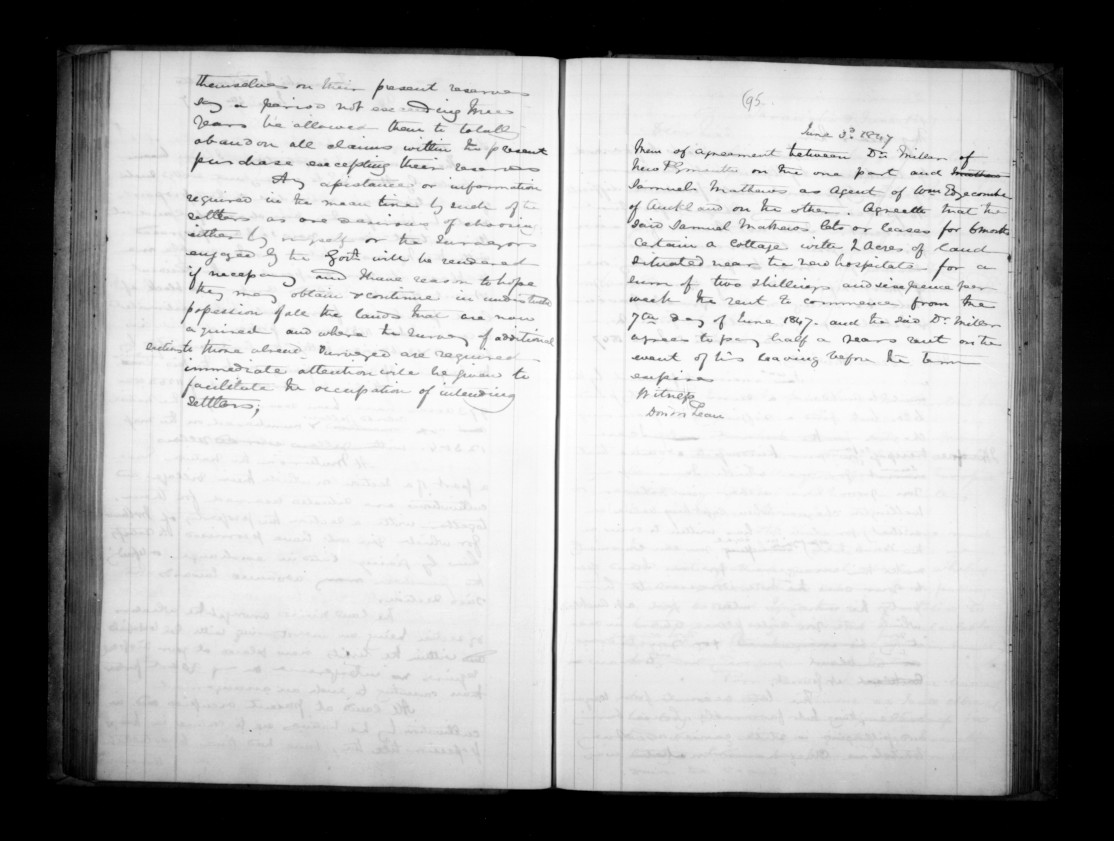 themselves on their present reserves
say a period not exceeding three
years be allowed them to totally
abandon all claims within the present
purchase excepting their reserves
Any assistance or information
required in the mean time by such of the
settlers as are desirous of choosing
either by myself or the Surveyors
engaged by the Govt. will be rendered
if necessary and I have reason to hope
they may obtain & continue in undisturbed
possession of all the lands that are now
acquired and where the survey of additional
sections to those already surveyed are required
immediate attention will be given to
facilitate the occupation of intending
settlers,
(95.
June 3d. 1847
Mem of agreement between Dr. Miller of
New Plymouth on the one part and Mathews
Samuel Mathews as agent of Wm Edgecombe
of Auckland on the other. Agreeth that the
said Samuel Mathews lets or leases for 6 months
certain a Cottage with 2 Acres of land
situated near the new hospital for a
sum of two shillings and sixpence per
week the rent to commence from the
7th day of June 1847. and the said Dr. Miller
agrees to pay half a years rent on the
event of his leaving before the term
expires
Witness
Donald Lean